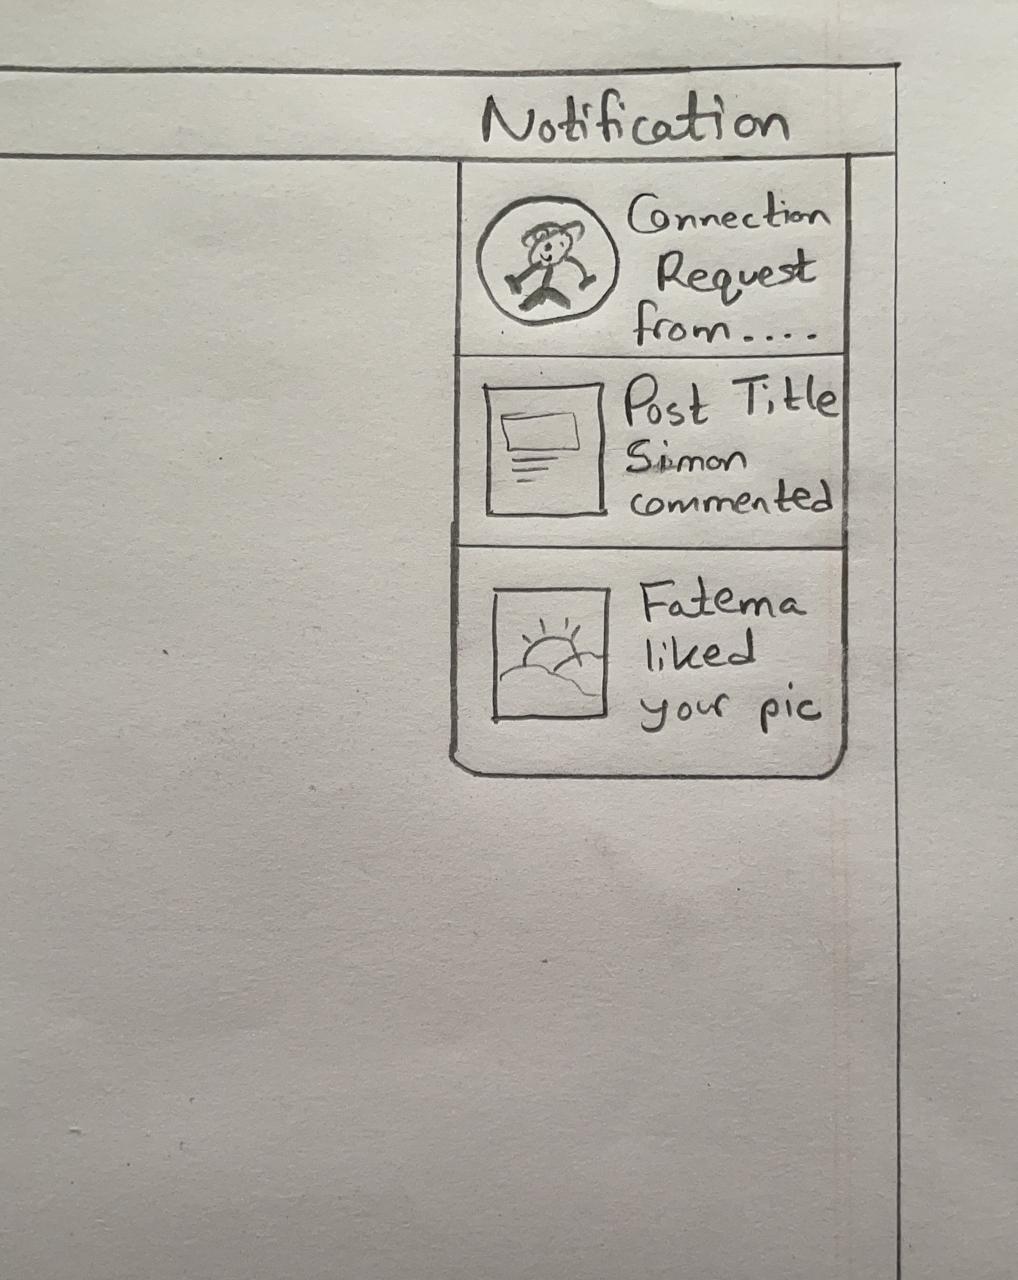 Notification
Connection
Request
from....
Post Title
Simon
commented
Fatema
liked
your pic